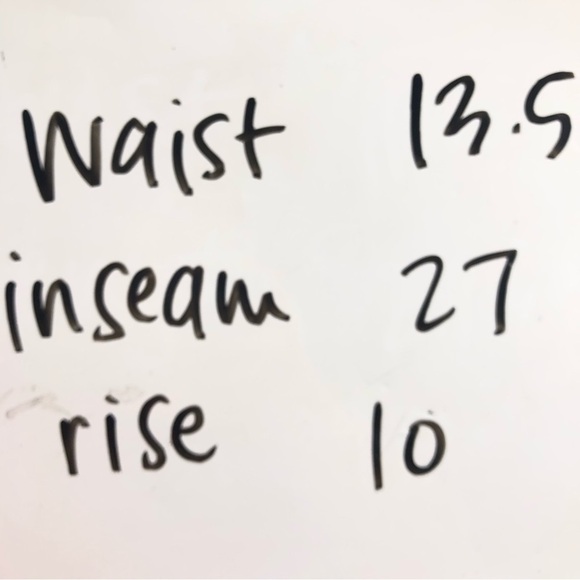 Waist 13.5
inseam 27
rise 10